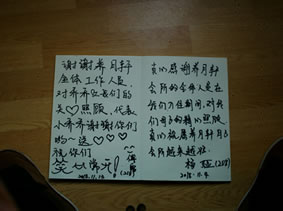 谢谢养月轩
全体工作人员
对乔乔住院们的
关♡照顾，代表
小乔乔谢谢你们
哟～送♡♡
祝你们
笑口常开！
2015.11.14
(208)
真的感谢养月轩
会所的全体人员在
我们入住期间，对我
们母子的精心照顾
真心祝愿养月轩月子
会所越来越旺。
杨 (208)
2015.11.14